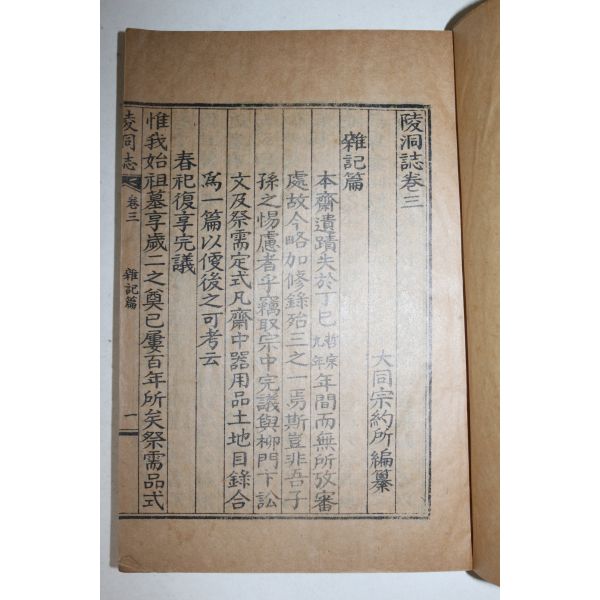 陵洞誌卷三
大同宗約所編纂
雜記篇
本齋遺蹟失於丁巳哲宗九年年間而無所攷審
處故今略加修錄殆三之一焉斯豈非吾子
孫之惕慮者乎竊取宗中完議與柳門卞訟
文及祭需定式凡齋中器用品土地目錄合
爲一篇以便後之可考云
春祀復享完議
惟我始祖墓享歲二之奠已屢百年所矣祭需品式
陵洞志 卷三 雜記篇 一